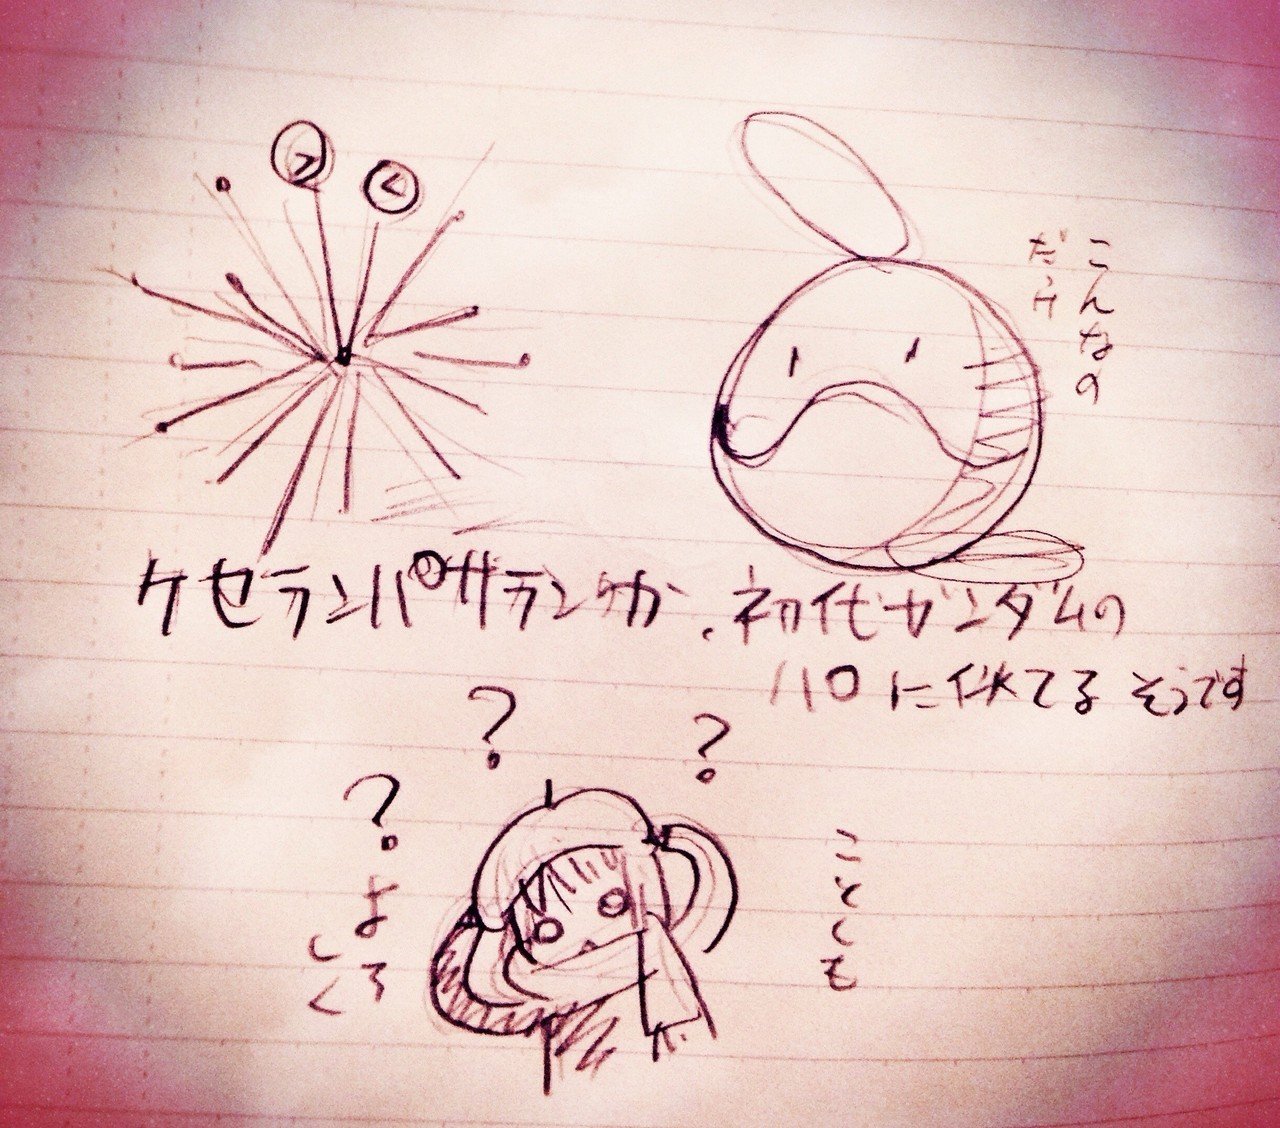 こんなの
だっけ
ケセランパサランが、初代ガンダムの
ハロに似てるそうです
?
?
?
ことしも
よろ
しく